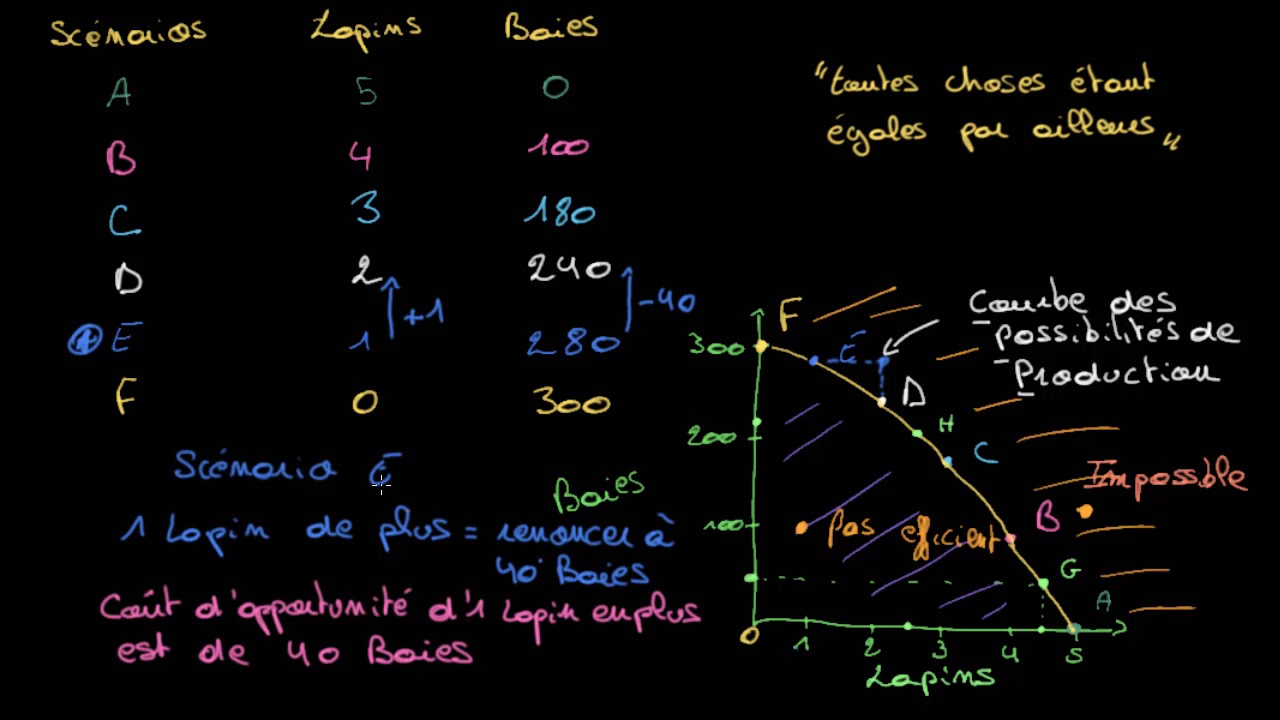 Scénarios Lapins Baies
A 5 0
B 4 100
C 3 180
D 2 240
E 1 280
F 0 300
+1
-40
"toutes choses étant
égales par ailleurs"
Scénario E
1 Lapin de plus = renoncer à
40 Baies
Coût d'opportunité d'1 Lapin en plus
est de 40 Baies
Courbe des
Possibilités de
Production
F
300
E
D
H
200
C
Impossible
Baies
100
Pas efficient
B
G
A
0 1 2 3 4 5
Lapins